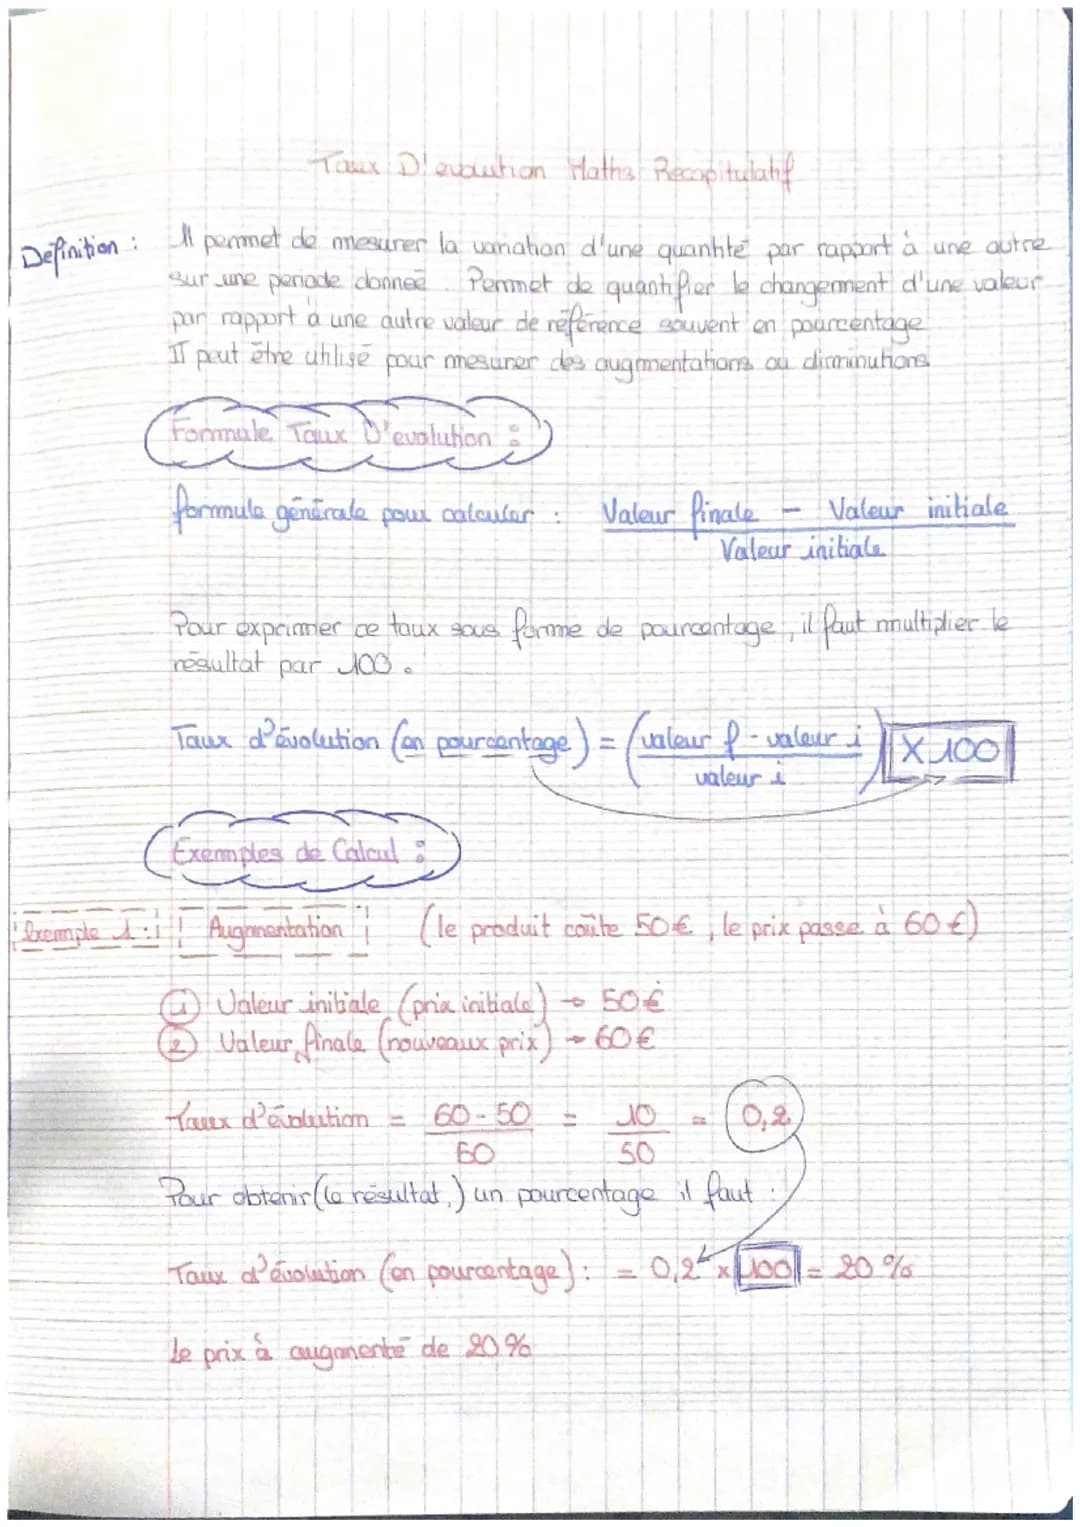 Taux D'evolution Maths Recapitulatif
Definition : Il permet de mesurer la variation d'une quantité par rapport à une autre
sur une periode donneé. Permet de quantifier le changement d'une valeur
par rapport à une autre valeur de référence souvent en pourcentage
Il peut être utilisé pour mesurer des augmentations ou diminutions
Formule Taux D'evolution :
formule générale pour calculer : Valeur finale - Valeur initiale
Valeur initiale
Pour exprimer ce taux sous forme de pourcentage, il faut multiplier le
résultat par 100.
Taux d'évolution (en pourcentage) = (valeur f - valeur i) X 100
valeur i
Exemples de Calcul :
Exemple 1 : Augmentation (le produit coûte 50€, le prix passe à 60€)
① Valeur initiale (prix initiale) → 50€
② Valeur finale (nouveaux prix) → 60€
Taux d'évolution = 60-50 = 10 = 0,2
50 50
Pour obtenir (le résultat,) un pourcentage il faut :
Taux d'évolution (en pourcentage) : = 0,2 x 100 = 20 %
Le prix à augmenté de 20%